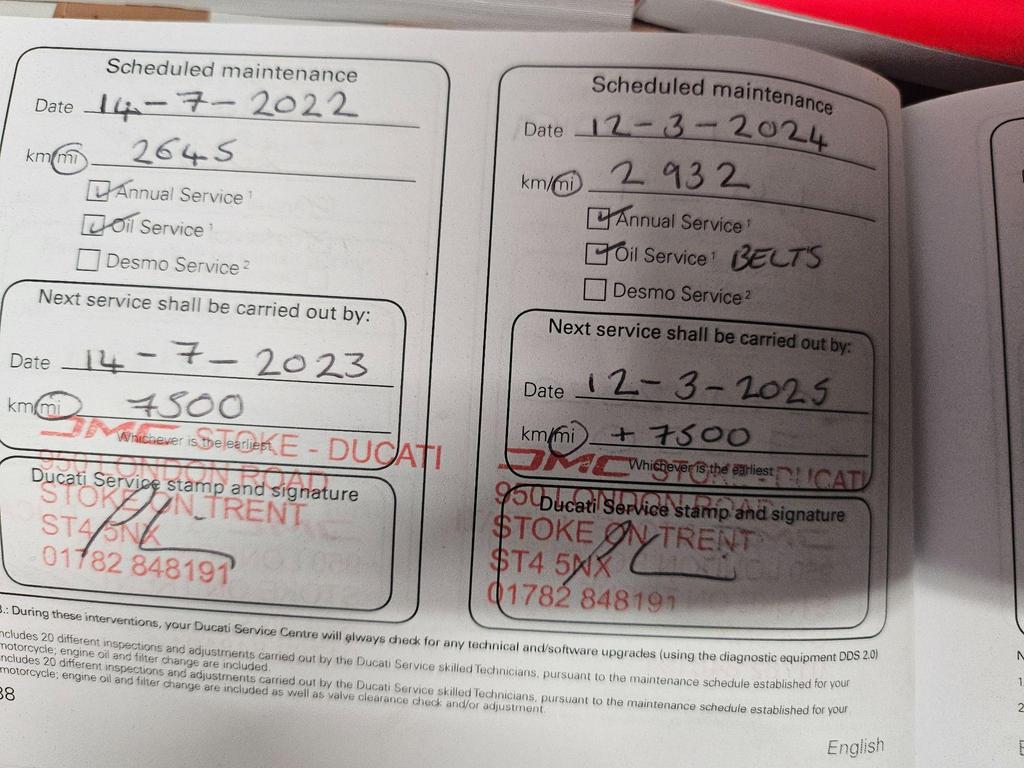 Scheduled maintenance
Date 14-7-2022
km/mi 2645
Annual Service 1
Oil Service 1
Desmo Service 2
Next service shall be carried out by:
Date 14-7-2023
km/mi 7500
Whichever is the earliest
JMC STOKE - DUCATI
950 LONDON ROAD
Ducati Service stamp and signature
STOKE ON TRENT
ST4 5NX
01782 848191
Scheduled maintenance
Date 12-3-2024
km/mi 2932
Annual Service 1
Oil Service 1 BELTS
Desmo Service 2
Next service shall be carried out by:
Date 12-3-2025
km/mi + 7500
Whichever is the earliest
JMC STOKE - DUCATI
950 LONDON ROAD
Ducati Service stamp and signature
STOKE ON TRENT
ST4 5NX
01782 848191
.: During these interventions, your Ducati Service Centre will always check for any technical and/software upgrades (using the diagnostic equipment DDS 2.0)
ncludes 20 different inspections and adjustments carried out by the Ducati Service skilled Technicians, pursuant to the maintenance schedule established for your
motorcycle; engine oil and filter change are included.
ncludes 20 different inspections and adjustments carried out by the Ducati Service skilled Technicians, pursuant to the maintenance schedule established for your
motorcycle; engine oil and filter change are included as well as valve clearance check and/or adjustment.
38
English
N
1
2
E